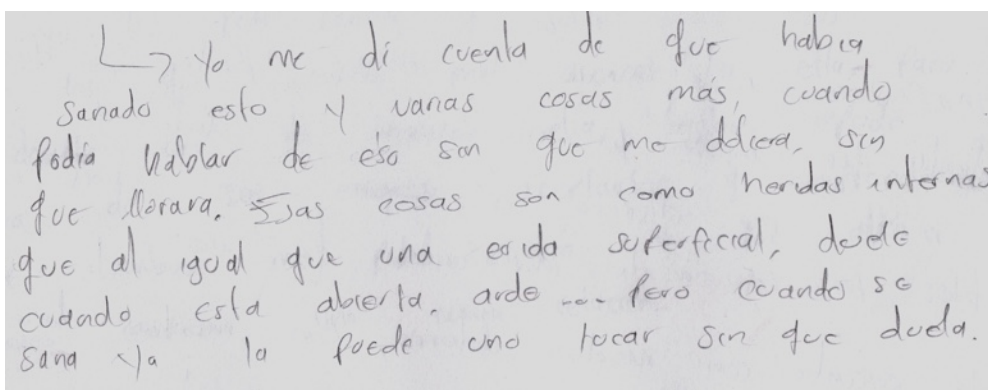 ↳ Yo me di cuenta de que había
sanado esto y varias cosas más, cuando
podía hablar de eso sin que me doliera, sin
que llorara. Esas cosas son como heridas internas
que al igual que una erida superficial, duele
cuando esta abierta, arde .... pero cuando se
sana ya la puede uno tocar sin que duela.